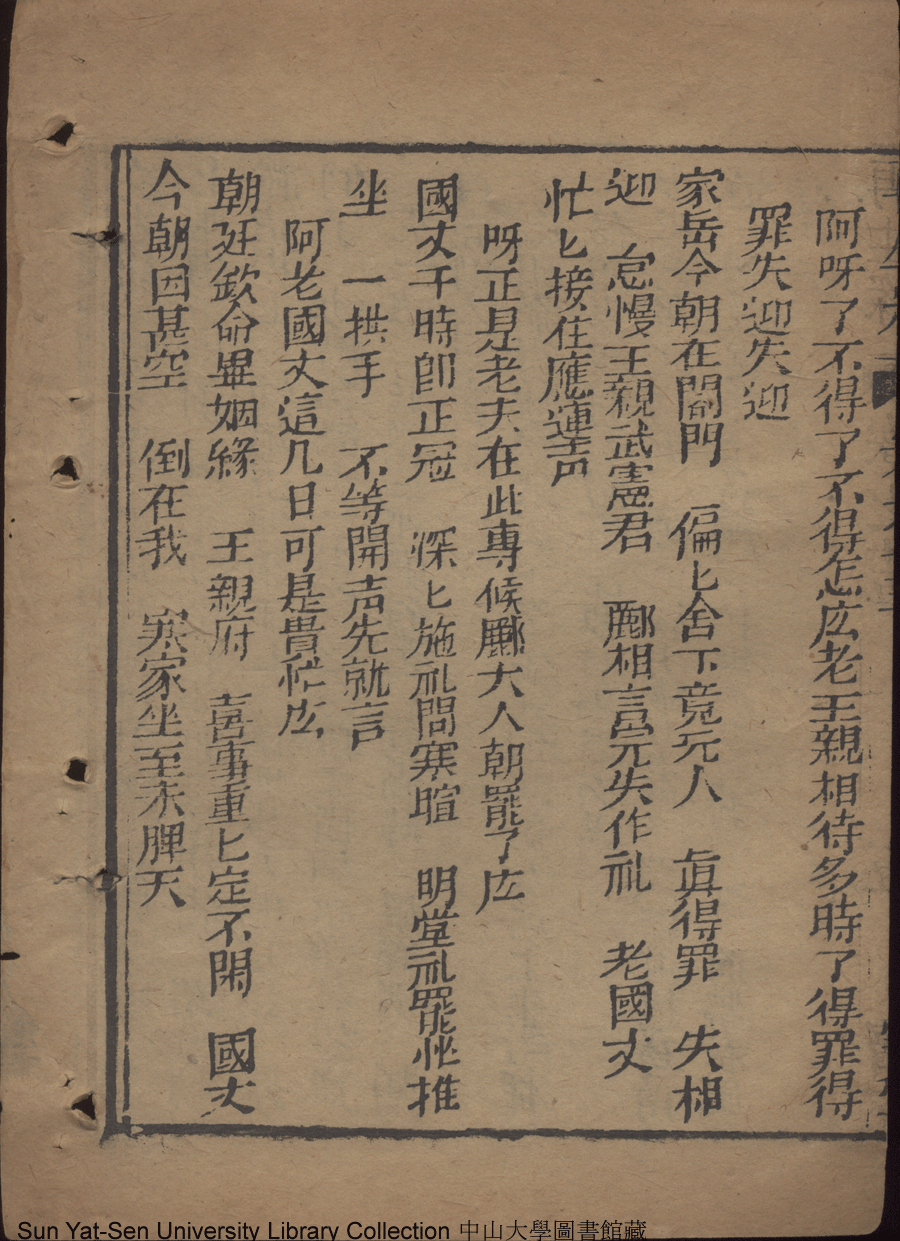 阿呀了不得了不得怎庅老王親相待多時了得罪得
罪失迎失迎
家岳今朝在閣門 偏匕舍下竟无人 真得罪 失相
迎 怠慢王親武憲君 酈相言岂元失作礼 老國丈
忙匕接住應連声
呀正是老夫在此專候酈大人朝罷了庅
國丈千時卽正冠 深匕施礼問寒暄 明堂礼罷忙推
坐 一拱手 不等開声先就言
阿老國丈這几日可是貴忙庅
朝廷欽命畢姻緣 王親府 喜事重匕定不閑 國丈
今朝因甚空 倒在我 寒家坐至未脾天
Sun Yat-Sen University Library Collection 中山大學圖書館藏